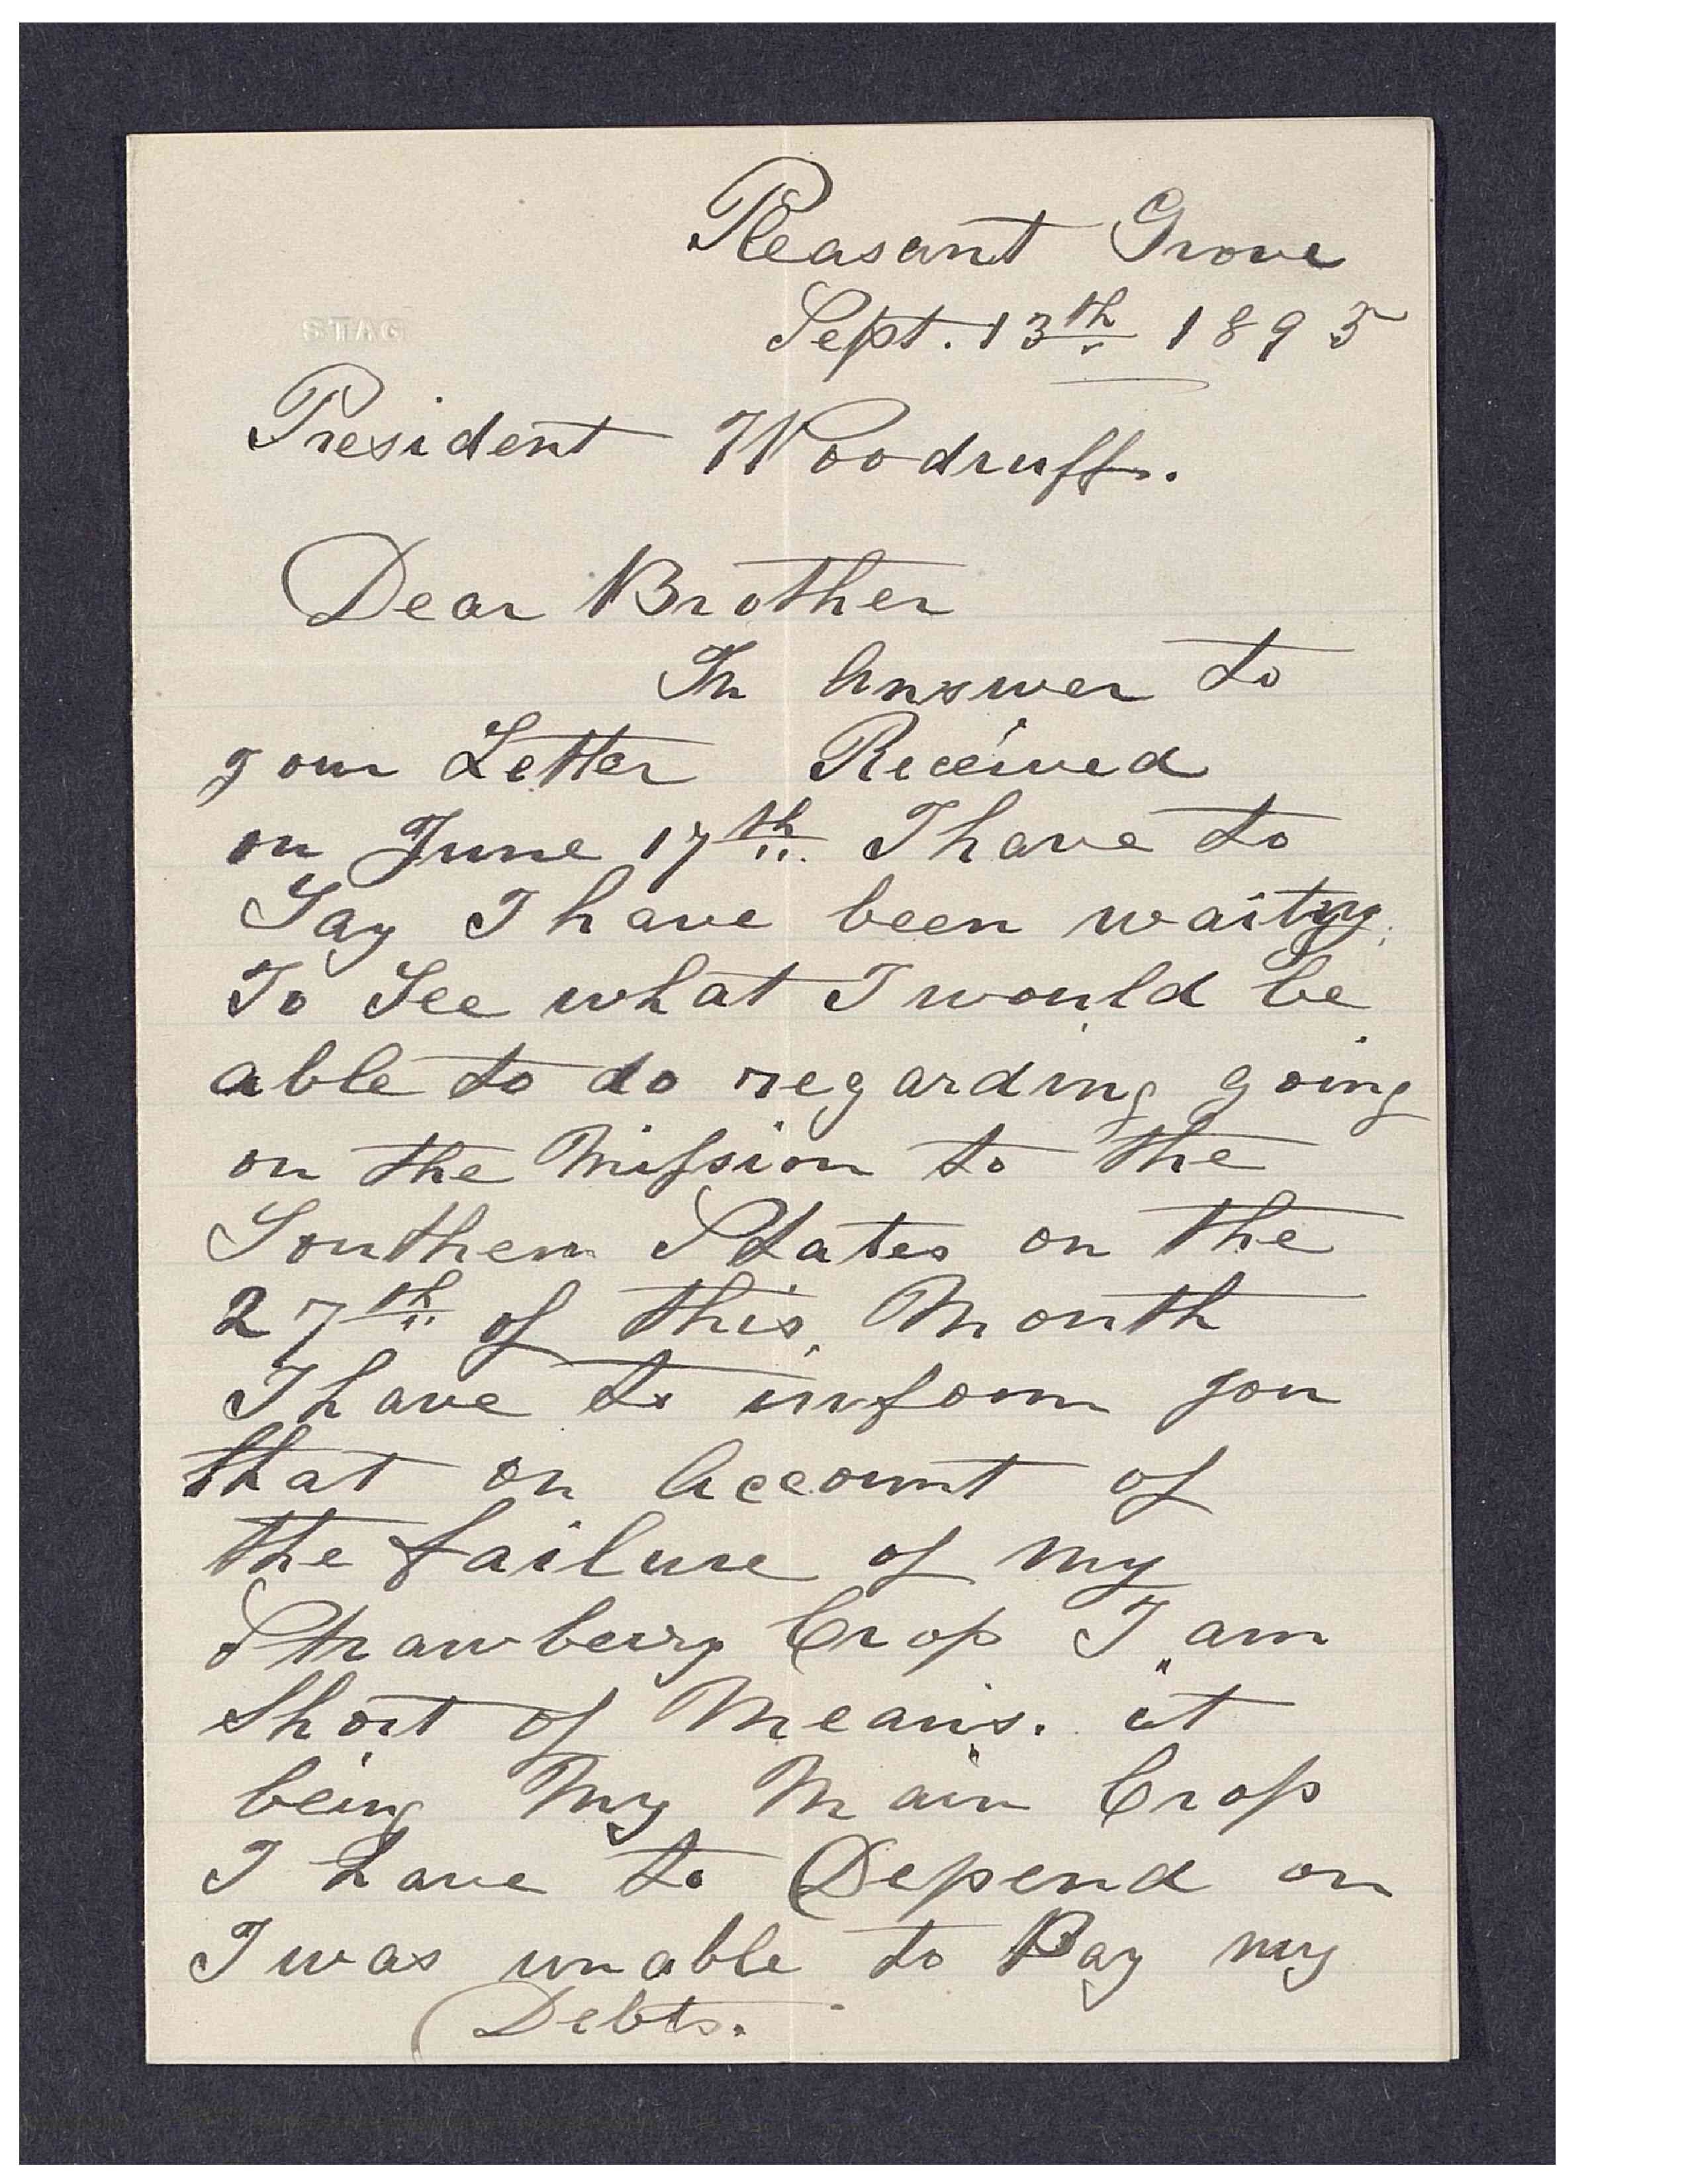 Pleasant Grove
Sept. 13th 1895
STAG
President Woodruff.
Dear Brother
In Answer to
your Letter Received
on June 17th. I have to
Say I have been waiting
To See what I would be
able to do regarding going
on the Mission to the
Southern States on the
27th of this Month
I have to inform you
that on Account of
the failure of my
Strawberry Crop I am
Short of Means. it
being My Main Crop
I have to Depend on
I was unable to Pay my
Debts.